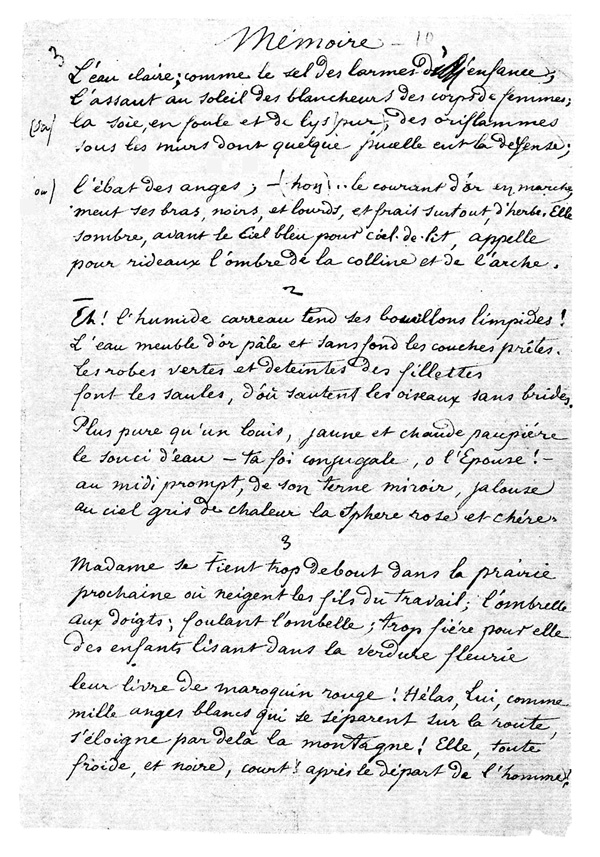 Mémoire - 10
3
L'eau claire ; comme le sel des larmes d'enfance ;
l'assaut au soleil des blancheurs des corps de femmes ;
la soie, en foule et de lys pur, des oriflammes
sous les murs dont quelque pucelle eut la défense ;
l'ébat des anges ; - non .. le courant d'or en marche,
meut ses bras, noirs, et lourds, et frais surtout, d'herbe. Elle
sombre, avant le Ciel bleu pour ciel-de-lit, appelle
pour rideaux l'ombre de la colline et de l'arche.
2
Eh ! l'humide carreau tend ses bouillons limpides !
L'eau meuble d'or pâle et sans fond les couches prêtes.
Les robes vertes et déteintes des fillettes
font les saules, d'où sautent les oiseaux sans brides.
Plus pure qu'un louis, jaune et chaude paupière
le souci d'eau - ta foi conjugale, ô l'Épouse ! -
au midi prompt, de son terne miroir, jalouse
au ciel gris de chaleur la Sphère rose et chère.
3
Madame se tient trop debout dans la prairie
prochaine où neigent les fils du travail ; l'ombrelle
aux doigts ; foulant l'ombelle ; trop fière pour elle
des enfants lisant dans la verdure fleurie
leur livre de maroquin rouge ! Hélas, Lui, comme
mille anges blancs qui se séparent sur la route,
s'éloigne par delà la montagne ! Elle, toute
froide, et noire, court ! après le départ de l'homme !